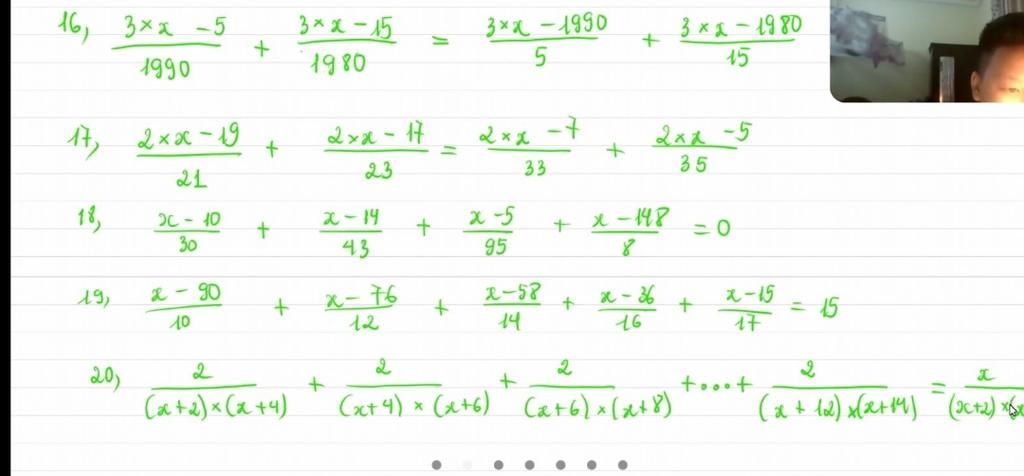 16, (3×x -5)/1990 + (3×x - 15)/1980 = (3×x -1990)/5 + (3×x -1980)/15
17, (2×x - 19)/21 + (2×x - 17)/23 = (2×x -7)/33 + (2×x -5)/35
18, (x - 10)/30 + (x - 14)/43 + (x -5)/95 + (x -148)/8 = 0
19, (x - 90)/10 + (x - 76)/12 + (x-58)/14 + (x -36)/16 + (x -15)/17 = 15
20, 2/((x+2)×(x+4)) + 2/((x+4)×(x+6)) + 2/((x+6)×(x+8)) +...+ 2/((x+12)×(x+14)) = x/((x+2)×(x